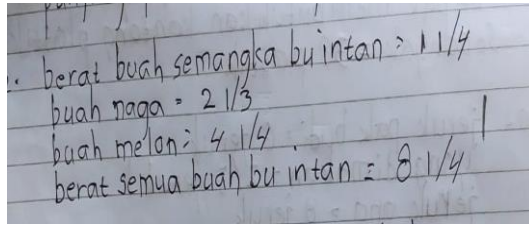 . berat buah semangka bu intan = 1 1/4
buah naga = 2 1/3
buah melon = 4 1/4
berat semua buah bu intan = 8 1/4